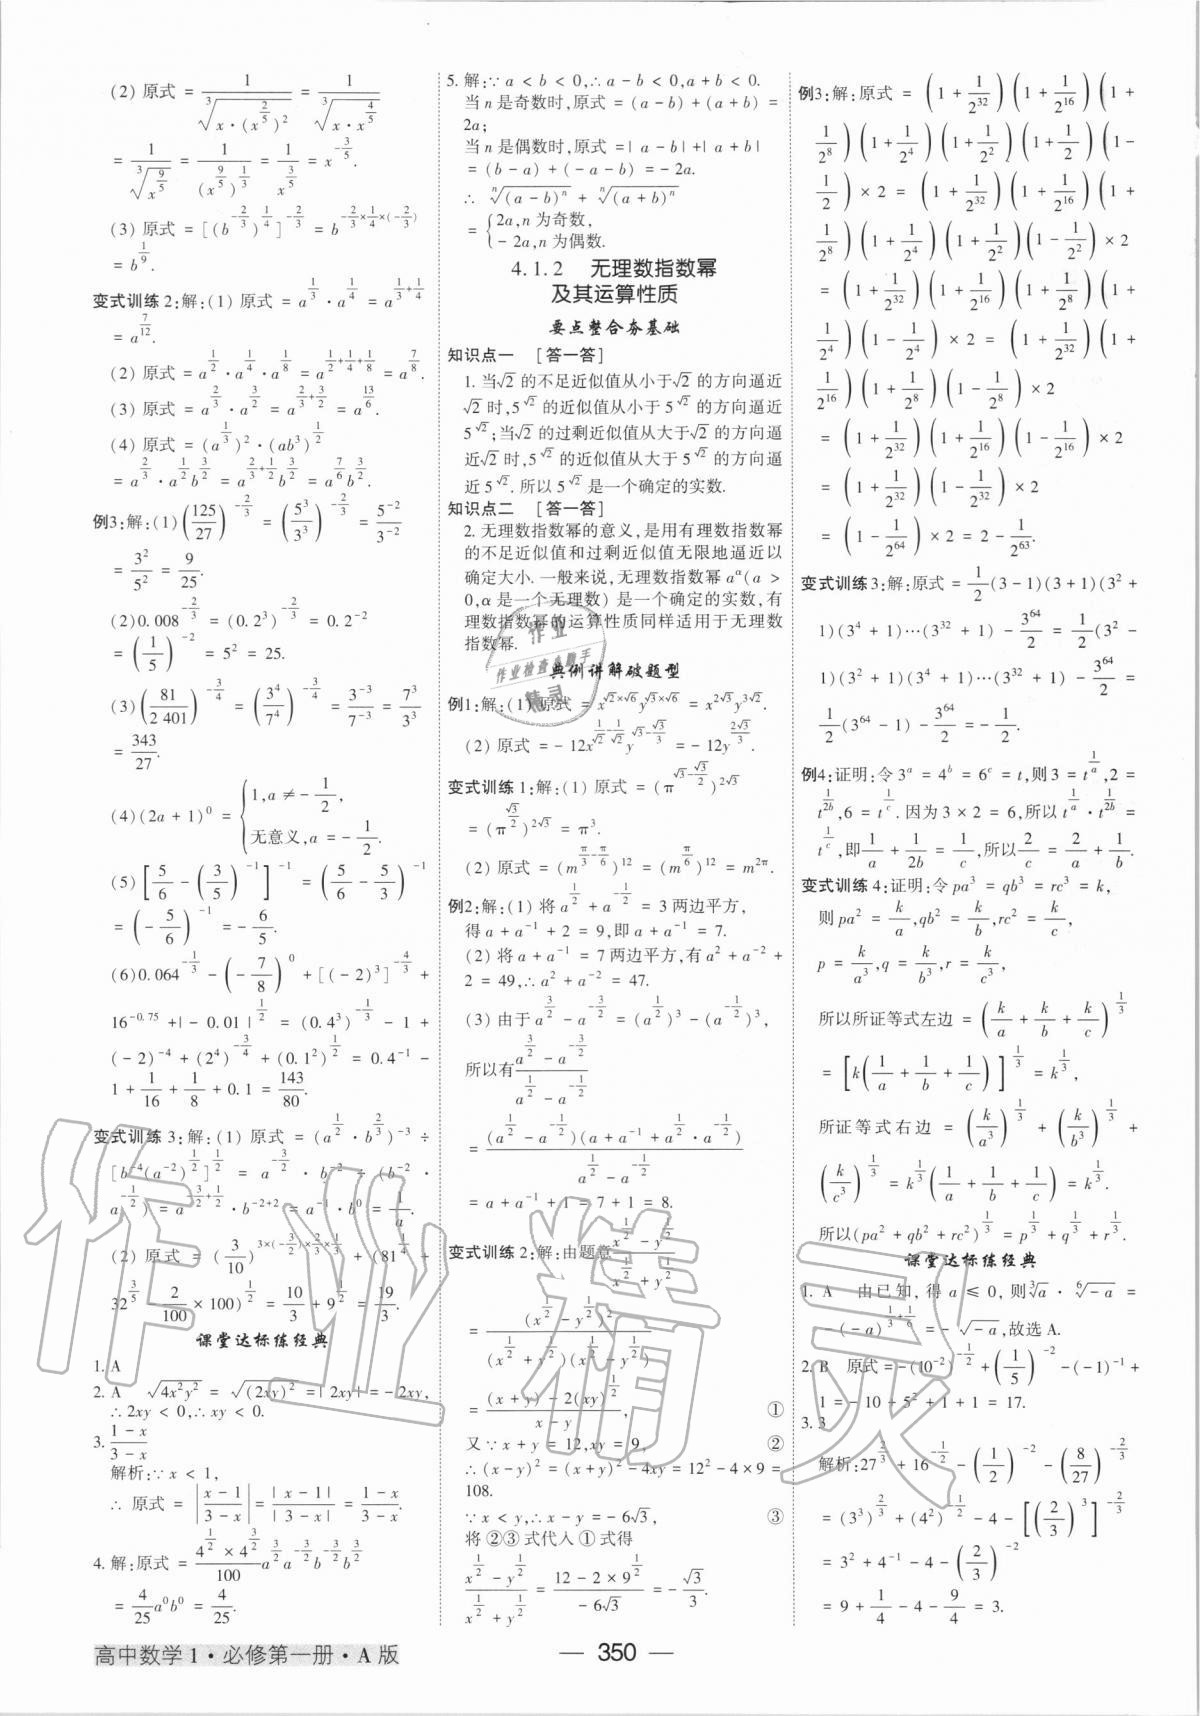 (2) 原式 = 1/∛(x·(x^(2/5))^2) = 1/∛(x·x^(4/5))
= 1/∛(x^(9/5)) = 1/(x^(9/5))^(1/3) = 1/x^(3/5) = x^(-3/5).
(3) 原式 = [(b^(-2/3))^(1/4)]^(-2/3) = b^(-2/3×1/4×(-2/3))
= b^(1/9).
变式训练2:解:(1) 原式 = a^(1/3)·a^(1/4) = a^(1/3+1/4)
= a^(7/12).
(2) 原式 = a^(1/2)·a^(1/4)·a^(1/8) = a^(1/2+1/4+1/8) = a^(7/8).
(3) 原式 = a^(2/3)·a^(3/2) = a^(2/3+3/2) = a^(13/6).
(4) 原式 = (a^(1/3))^2·(ab^3)^(1/2)
= a^(2/3)·a^(1/2)b^(3/2) = a^(2/3+1/2)b^(3/2) = a^(7/6)b^(3/2).
例3:解:(1)(125/27)^(-2/3) = (5^3/3^3)^(-2/3) = 5^(-2)/3^(-2)
= 3^2/5^2 = 9/25.
(2)0.008^(-2/3) = (0.2^3)^(-2/3) = 0.2^(-2)
= (1/5)^(-2) = 5^2 = 25.
(3)(81/2 401)^(-3/4) = (3^4/7^4)^(-3/4) = 3^(-3)/7^(-3) = 7^3/3^3
= 343/27.
(4)(2a+1)^0 = {1,a≠-1/2,
无意义,a=-1/2.
(5)[5/6-(3/5)^(-1)]^(-1) = (5/6-5/3)^(-1)
= (-5/6)^(-1) = -6/5.
(6)0.064^(-1/3)-(-7/8)^0+[(-2)^3]^(-4/3)+
16^(-0.75)+|-0.01|^(1/2) = (0.4^3)^(-1/3)-1+
(-2)^(-4)+(2^4)^(-3/4)+(0.1^2)^(1/2) = 0.4^(-1)-
1+1/16+1/8+0.1 = 143/80.
变式训练3:解:(1) 原式 = (a^(1/2)·b^(2/3))^(-3)÷
[b^(-4)(a^(-2))^(1/2)]^(1/2) = a^(-3/2)·b^(-2)÷(b^(-2)·
a^(-1/2)) = a^(-3/2+1/2)·b^(-2+2) = a^(-1)·b^0 = 1/a.
(2) 原式 = (3/10)^(3×(-3/2)×2/3×1/3)+(81^(1/4)+
32^(3/5)-2/100×100)^(1/2) = 10/3+9^(1/2) = 19/3.
课堂达标练经典
1. A
2. A √(4x^2y^2) = √((2xy)^2) = |2xy| = -2xy,
∴2xy<0,∴xy<0.
3. (1-x)/(3-x)
解析:∵x<1,
∴ 原式 = |(x-1)/(3-x)| = |x-1|/|3-x| = (1-x)/(3-x).
4. 解:原式 = (4^(1/2)×4^(3/2))/100 a^(3/2)a^(-3/2)b^(-3/2)b^(3/2)
= 4/25 a^0b^0 = 4/25.
5. 解:∵a<b<0,∴a-b<0,a+b<0.
当n是奇数时,原式 = (a-b)+(a+b) =
2a;
当n是偶数时,原式 = |a-b|+|a+b|
= (b-a)+(-a-b) = -2a.
∴ ⁿ√((a-b)^n) + ⁿ√((a+b)^n)
= {2a,n为奇数,
-2a,n为偶数.
4.1.2 无理数指数幂
及其运算性质
要点整合夯基础
知识点一 [答一答]
1. 当√2的不足近似值从小于√2的方向逼近
√2时,5^√2的近似值从小于5^√2的方向逼近
5^√2;当√2的过剩近似值从大于√2的方向逼
近√2时,5^√2的近似值从大于5^√2的方向逼
近5^√2. 所以5^√2是一个确定的实数.
知识点二 [答一答]
2. 无理数指数幂的意义,是用有理数指数幂
的不足近似值和过剩近似值无限地逼近以
确定大小. 一般来说,无理数指数幂a^α(a>
0,α是一个无理数)是一个确定的实数,有
理数指数幂的运算性质同样适用于无理数
指数幂.
典例讲解破题型
例1:解:(1) 原式 = x^(√2×√6)y^(√3×√6) = x^(2√3)y^(3√2).
(2) 原式 = -12x^(1/√2-1/√2)y^(√3-√3/3) = -12y^(2√3/3).
变式训练1:解:(1) 原式 = (π^(√3-√3/2))^(2√3)
= (π^(√3/2))^(2√3) = π^3.
(2) 原式 = (m^(π/3-π/6))^12 = (m^(π/6))^12 = m^(2π).
例2:解:(1) 将a^(1/2)+a^(-1/2) = 3两边平方,
得a+a^(-1)+2 = 9,即a+a^(-1) = 7.
(2) 将a+a^(-1) = 7两边平方,有a^2+a^(-2)+
2 = 49,∴a^2+a^(-2) = 47.
(3) 由于a^(3/2)-a^(-3/2) = (a^(1/2))^3-(a^(-1/2))^3,
所以有(a^(3/2)-a^(-3/2))/(a^(1/2)-a^(-1/2))
= (a^(1/2)-a^(-1/2))(a+a^(-1)+a^(1/2)·a^(-1/2))/(a^(1/2)-a^(-1/2))
= a+a^(-1)+1 = 7+1 = 8.
变式训练2:解:由题意(x^(1/2)-y^(1/2))/(x^(1/2)+y^(1/2))
= (x^(1/2)-y^(1/2))^2/((x^(1/2)+y^(1/2))(x^(1/2)-y^(1/2)))
= ((x+y)-2(xy)^(1/2))/(x-y), ①
又∵x+y = 12,xy = 9, ②
∴(x-y)^2 = (x+y)^2-4xy = 12^2-4×9 =
108.
∵x<y,∴x-y = -6√3, ③
将②③式代入①式得
(x^(1/2)-y^(1/2))/(x^(1/2)+y^(1/2)) = (12-2×9^(1/2))/(-6√3) = -√3/3.
例3:解:原式 = (1+1/2^32)(1+1/2^16)(1+
1/2^8)(1+1/2^4)(1+1/2^2)(1+1/2)(1-
1/2)×2 = (1+1/2^32)(1+1/2^16)(1+
1/2^8)(1+1/2^4)(1+1/2^2)(1-1/2^2)×2
= (1+1/2^32)(1+1/2^16)(1+1/2^8)(1+
1/2^4)(1-1/2^4)×2 = (1+1/2^32)(1+
1/2^16)(1+1/2^8)(1-1/2^8)×2
= (1+1/2^32)(1+1/2^16)(1-1/2^16)×2
= (1+1/2^32)(1-1/2^32)×2
= (1-1/2^64)×2 = 2-1/2^63.
变式训练3:解:原式 = 1/2(3-1)(3+1)(3^2+
1)(3^4+1)…(3^32+1)-3^64/2 = 1/2(3^2-
1)(3^2+1)(3^4+1)…(3^32+1)-3^64/2 =
1/2(3^64-1)-3^64/2 = -1/2.
例4:证明:令3^a = 4^b = 6^c = t,则3 = t^(1/a),2 =
t^(1/2b),6 = t^(1/c). 因为3×2 = 6,所以t^(1/a)·t^(1/2b) =
t^(1/c),即1/a+1/2b = 1/c,所以2/c = 2/a+1/b.
变式训练4:证明:令pa^3 = qb^3 = rc^3 = k,
则pa^2 = k/a,qb^2 = k/b,rc^2 = k/c,
p = k/a^3,q = k/b^3,r = k/c^3,
所以所证等式左边 = (k/a+k/b+k/c)^(1/3)
= [k(1/a+1/b+1/c)]^(1/3) = k^(1/3),
所证等式右边 = (k/a^3)^(1/3)+(k/b^3)^(1/3)+
(k/c^3)^(1/3) = k^(1/3)(1/a+1/b+1/c) = k^(1/3).
所以(pa^2+qb^2+rc^2)^(1/3) = p^(1/3)+q^(1/3)+r^(1/3).
课堂达标练经典
1. A 由已知,得a≤0,则∛a·⁶√(-a) =
-(-a)^(1/3+1/6) = -√(-a),故选A.
2. B 原式 = -(10^(-2))^(-1/2)+(1/5)^(-2)-(-1)^(-1)+
1 = -10+5^2+1+1 = 17.
3. 3
解析:27^(2/3)+16^(-1/2)-(1/2)^(-2)-(8/27)^(-2/3)
= (3^3)^(2/3)+(4^2)^(-1/2)-4-[(2/3)^3]^(-2/3)
= 3^2+4^(-1)-4-(2/3)^(-2)
= 9+1/4-4-9/4 = 3.
高中数学1·必修第一册·A版
— 350 —
作业精灵
作业
作业检查小助手
精灵